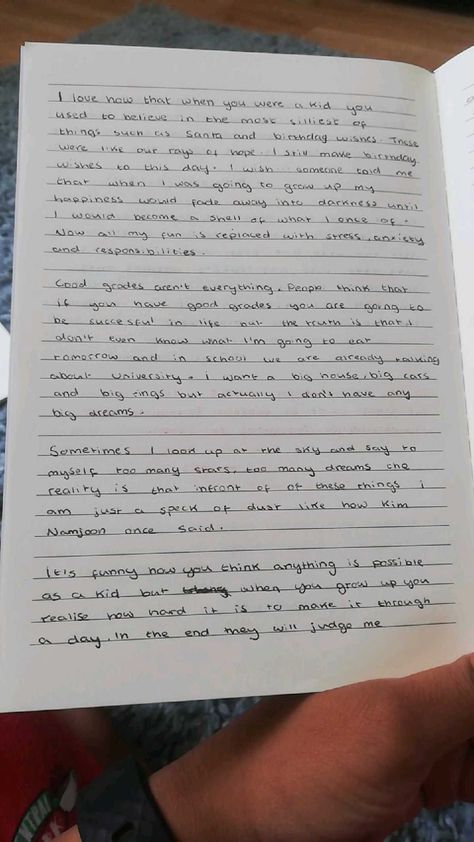 I love how that when you were a kid you
used to believe in the most silliest of
things such as Santa and birthday wishes. These
were like our rays of hope. I still make birthday
wishes to this day. I wish someone told me
that when I was going to grow up my
happiness would fade away into darkness until
I would become a shell of what I once of.
Now all my fun is replaced with stress, anxiety
and responsibilities.
Good grades aren't everything. People think that
if you have good grades you are going to
be successful in life but the truth is that I
don't even know what I'm going to eat
tomorrow and in school we are already talking
about university. I want a big house, big cars
and big rings but actually I don't have any
big dreams.
Sometimes I look up at the sky and say to
myself too many stars, too many dreams the
reality is that infront of of these things i
am just a speck of dust like how Kim
Namjoon once said.
It's funny how you think anything is possible
as a kid but when you grow up you
realise how hard it is to make it through
a day. In the end they will judge me